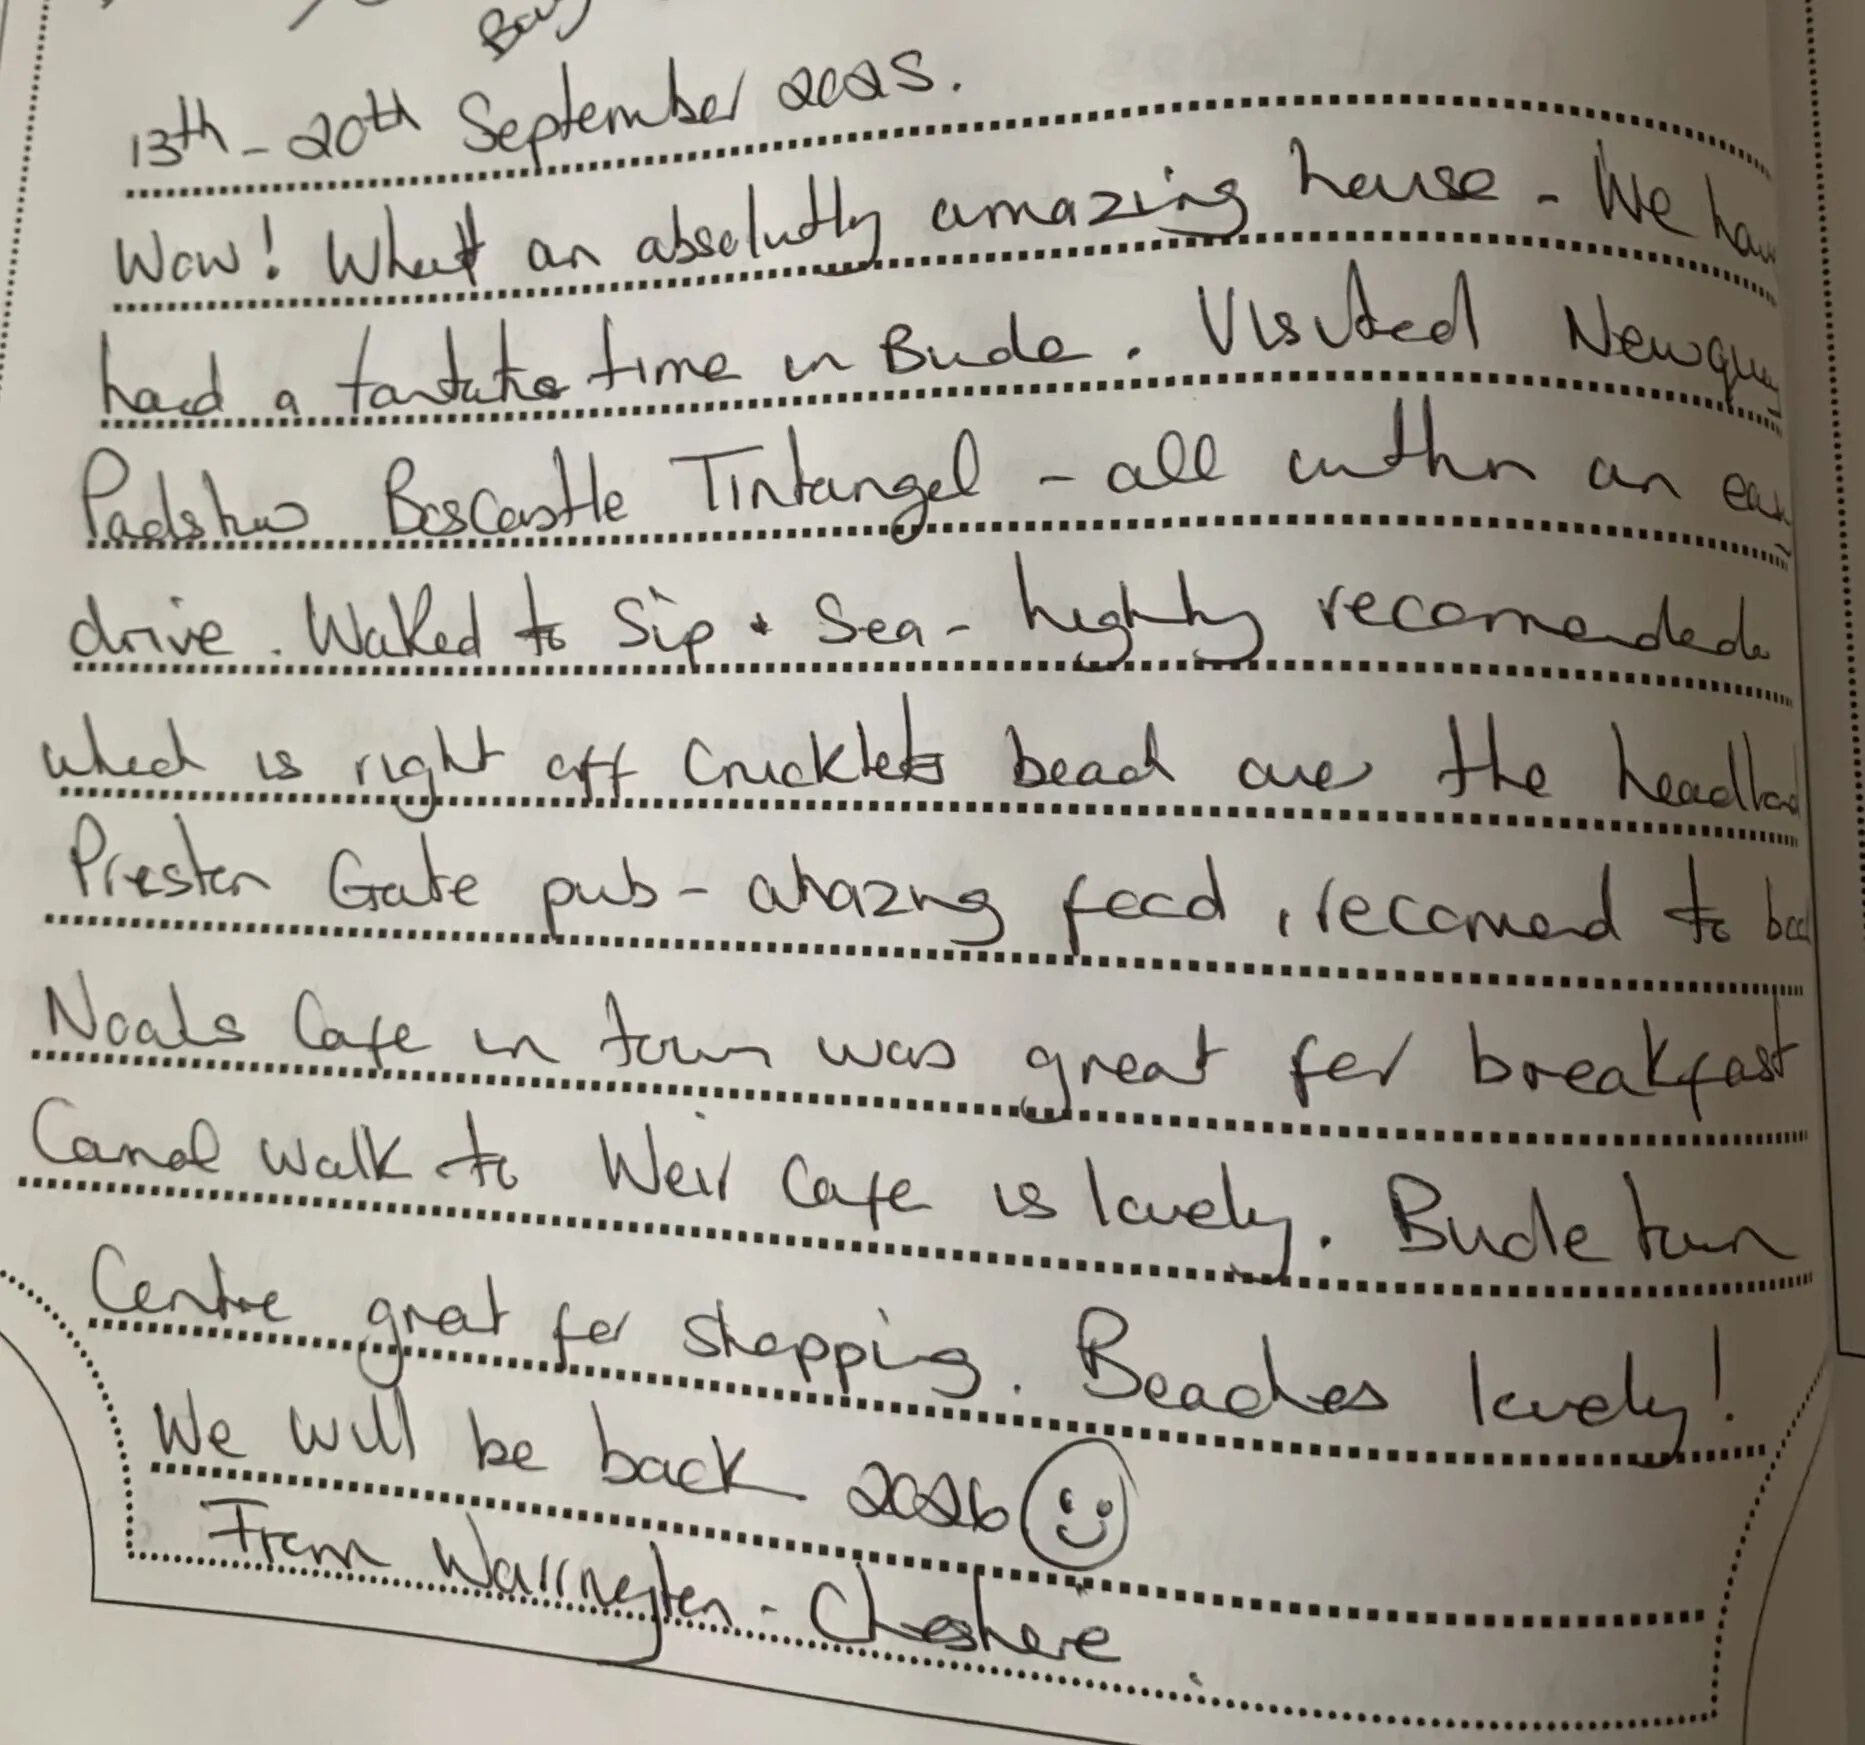 Boy
13th - 20th September 2025.
Wow! What an absolutly amazing house - We have
had a fantastic time in Bude. Visited Newquay
Padstow Boscastle Tintangel - all within an eas
drive. Walked to Sip + Sea - highly recomended
which is right off Crucklets beach over the headland
Preston Gate pub - amazing food, recomend to book
Noahs Cafe in town was great for breakfast
Canal walk to Weir Cafe is lovely. Bude town
Centre great for shopping. Beaches lovely!
We will be back 2026
From Warrington - Cheshire.